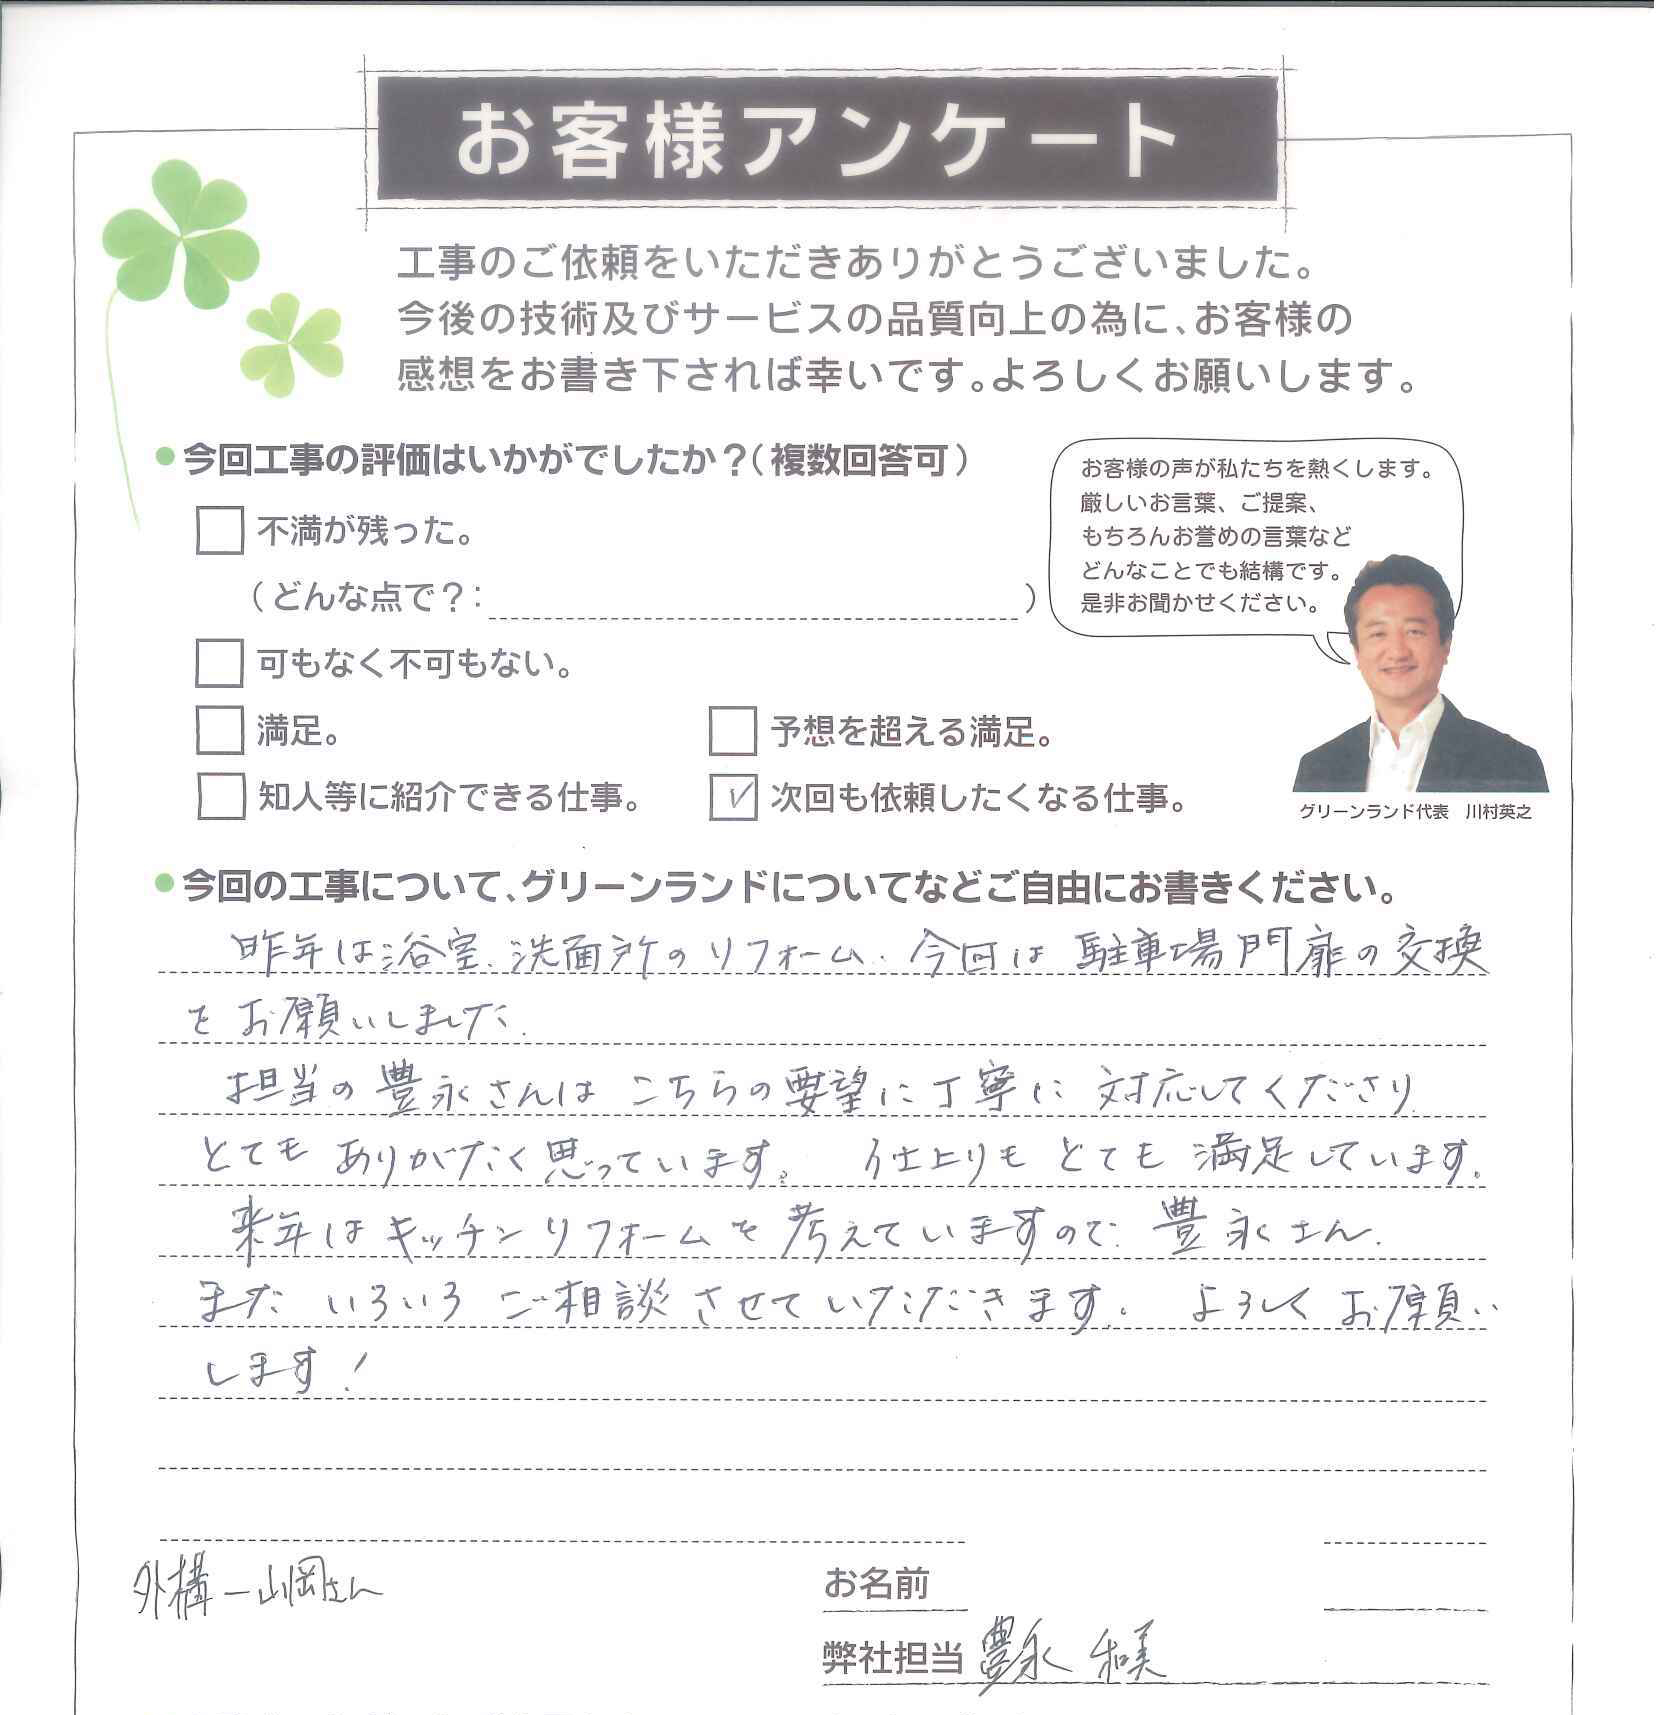 お客様アンケート
工事のご依頼をいただきありがとうございました。
今後の技術及びサービスの品質向上の為に、お客様の
感想をお書き下されば幸いです。よろしくお願いします。
今回工事の評価はいかがでしたか？(複数回答可)
不満が残った。
(どんな点で？: )
可もなく不可もない。
満足。
予想を超える満足。
知人等に紹介できる仕事。
✓ 次回も依頼したくなる仕事。
お客様の声が私たちを熱くします。
厳しいお言葉、ご提案、
もちろんお誉めの言葉など
どんなことでも結構です。
是非お聞かせください。
グリーンランド代表 川村英之
今回の工事について、グリーンランドについてなどご自由にお書きください。
昨年は浴室、洗面所のリフォーム、今回は駐車場門扉の交換
をお願いしました。
担当の豊永さんはこちらの要望に丁寧に対応してくださり
とてもありがたく思っています。 仕上りもとても満足しています。
来年はキッチンリフォームを考えていますので、豊永さん、
またいろいろご相談させていただきます。 よろしくお願い
します！
外構ー山岡さん
お名前
弊社担当 豊永 和美